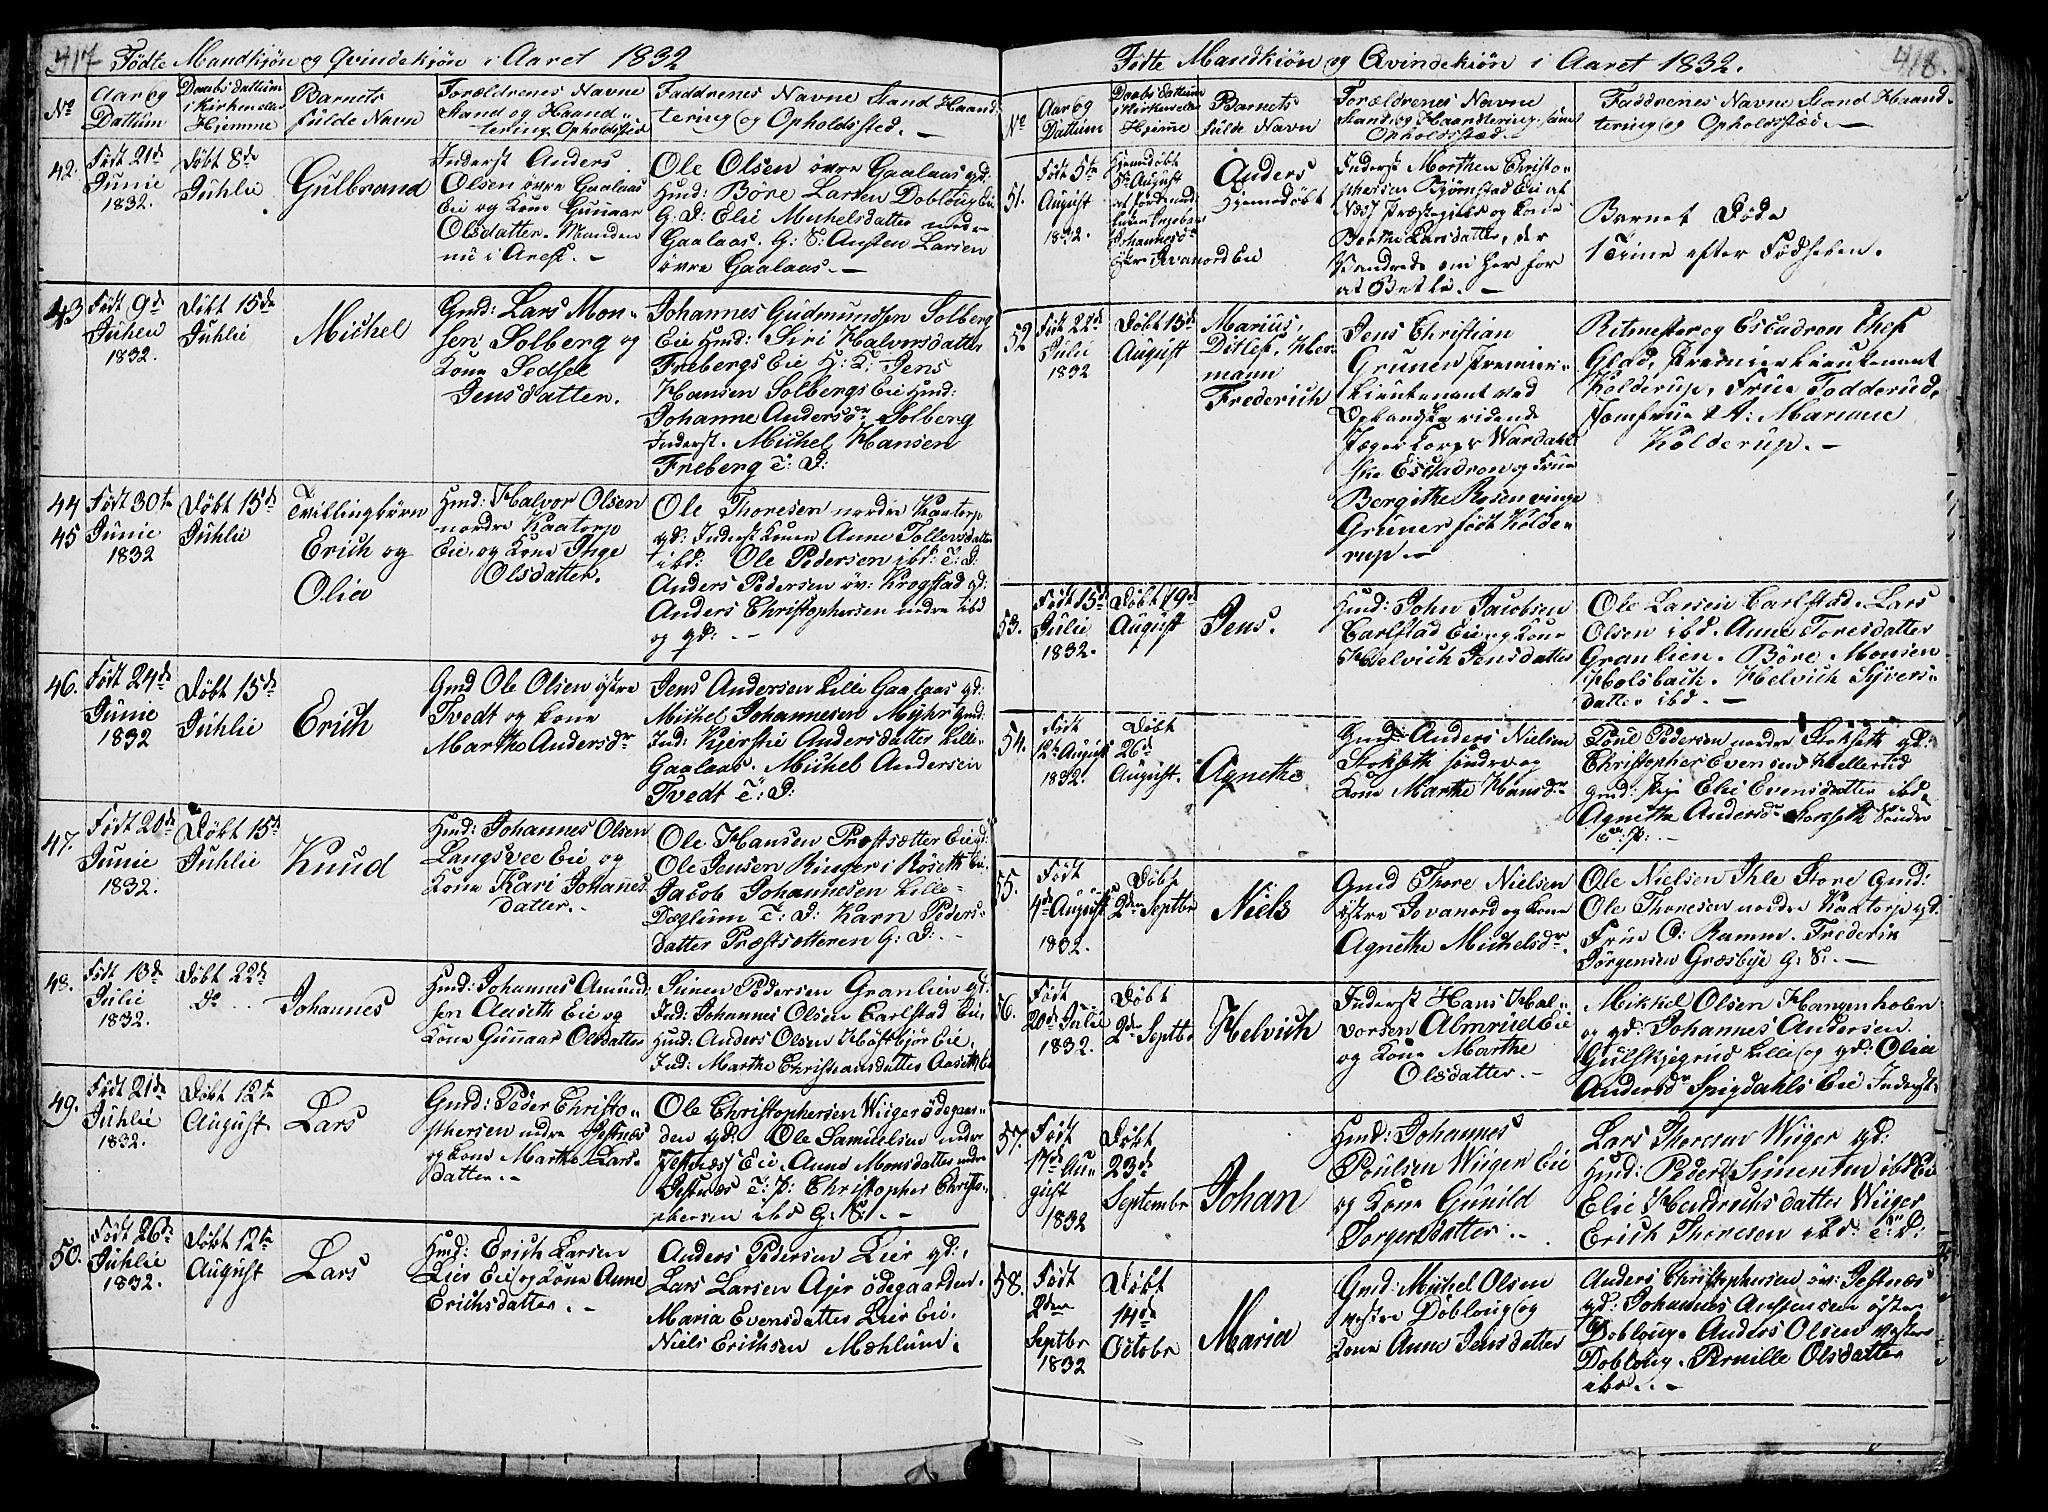 417 Fødte Mandkjøn og Qvindekjøn i Aaret 1832
No
Aar og
Dattum
Daabs dattum
i Kirken eller
Hjemme
Barnets
fulde Navn
Forældrenes Navne
Stand og Haand-
tering, Opholdssted
Faddrenes Navne Stand Haand-
tering og Opholdssted. —
42.
Født 21de
Junie
1832.
Døbt 8de
Juhlie
Gulbrand
Inderst Anders
Olsen øvre Gaalaas
Eie og Kone Gunnar
Olsdatter. Manden
nu i Arest. —
Ole Olsen øvre Gaalaas gd:
Hmd: Böre Larsen Doblougeie
G: D: Elie Michelsdatter nedre
Gaalaas. G: S: Austen Larsen
øvre Gaalaas. —
43
Født 9de
Juhen
1832.
Døbt 15de
Juhlie
Michel
Gmd: Lars Mon-
sen Solberg og
Kone Sedsel
Jensdatter.
Johannes Gudmundsen Solberg
Eie Hmd: Siri Halvorsdatter
Frebergs Eie H: K: Jens
Hansen Solbergs Eie Hmd:
Johanne Andersdr Solberg
Inderst. Michel Hansen
Freberg T: D:
44
45
Født 30te
Junie
1832
Døbt 15de
Juhlie
Tvillingbörn
Erich og
Olia
Hmd: Halvor Olsen
nordre Kaatorp
Eie, og Kone Inge
Olsdatter.
Ole Thoresen nordre Kaatorp
gd: Inderst Konen Anne Tollersdatter
ibd: Ole Pedersen ibd: T: D:
Anders Pedersen öv: Krogstad gd:
Anders Christophersen nedre ibd
og gd: . —
46.
Født 24de
Junie
1832
Døbt 15de
Juhlie
Erich
Gmd Ole Olsen östre
Tvedt og Kone
Marthe Andersdr
Jens Andersen Lille Gaalaas gd:
Michel Johannesen Myhr gmd:
Ind: Kjerstie Andersdatter Lille-
Gaalaas. Michel Andersen
Tvedt T: D:
47.
Født 20de
Junie
1832.
Døbt 15de
Juhlie
Knud
Hmd: Johannes Olsen
Langsvee Eie og
Kone Kari Johannes
datter. —
Ole Hansen Prestsætter Eie gd:
Ole Jensen Ringer i Röseth Eie.
Jacob Johannesen Lille-
Dæglum T: D: Karn Peders-
datter Præstsetteren G: D: —
48.
Født 13de
Julie
1832.
Døbt 22de
Do
Johannes
Hmd: Johannes Amund-
sen Aaseth Eie og
Kone Gunnaar Olsdatter
Simen Pedersen Granlien gd:
Ind: Johannes Olsen Carlstad Eie,
Hmd: Anders Olsen Höstbjör Eie,
Ind: Marthe Christiansdatter Aaseth Eie
49.
Født 21de
Juhlie
1832.
Døbt 12te
August
Lars
Gmd: Peder Christo-
phersen nedre Jestnæs
og Kone Marthe Lars-
datter. —
Ole Christophersen Wiiger ödegaar-
den gd. Ole Samuelsen nedre
Jestnæs Eie. Anne Monsdatter nedre
Jestnæs T: P: Christopher Christo-
phersen ibd G: S: —
50.
Født 26de
Juhlie
1832.
Døbt 12te
August
Lars
Hmd: Erich Larsen
Lier Eie og Kone Anne
Erichsdatter. —
Anders Pedersen Lier gd:,
Lars Larsen Ajer ödegaarden.
Maria Evensdatter Lier Eie.
Niels Erichsen Mæhlum.
Fødte Mandkiön og Qvindekiön i Aaret 1832. 418.
No
Aar og
Dattum
Daabs Dattum
i Kirken eller
Hjemme
Barnets
fulde Navn
Forældrenes Navne
Stand og Haandtering samt
Opholdssted.
Faddrenes Navne Stand Haand-
tering og Opholdssted. —
51.
Født 5te
August
1832.
Hjemdøbt
5te August
af Jordemod
Johannesdr
øvre Jevanord Eie
Anders
Hjemdøbt
Inderst Morthen Christo-
phersen Björnstad Eie af
Næs Præstegield og Kone
Berthe Larsdatter, der
Vandrede om her for
at Betle. —
Barnet Døde
1 Time efter Födselen.
52
Født 22de
Julie
1832
Døbt 15de
August
Marius,
Ditlef, Her-
mann
Frederich
Jens Christian
Gruner Premier-
Lieutenant ved
Oplandske ridende
Jæger Corps Wardahl-
ske Escadron og Frue
Bergithe Rosenvinge
Gruner født Kolde-
rup —
Ritmester og Escadron Chef
Glad, Premier Lieutenant
Kolderup, Frue Todderud,
Jomfrue A: Mariane
Kolderup. —
53.
Født 15de
Julie
1832.
Døbt 19de
August
Jens.
Hmd: John Jacobsen
Carlstad Eie og Kone
Helvich Jensdatter
Ole Larsen Carlstad. Lars
Olsen ibd. Anne Toresdatter
Granlien. Böre Monsen
Holsbach. Helvich Syvers-
datter ibd. —
54.
Født
12te August
1832.
Døbt
26de
August.
Agnethe
Gmd: Anders Nielsen
Stokseth söndre og
Kone Marthe Hansdr
Poul Pedersen nordre Stokseth gd:
Christopher Evensen Hellerud
gmd: Pige Elie Evensdatter ibd.
Agnethe Andersdr Stokseth Söndre
T: P: —
55.
Født
4de August
1832.
Døbt
2den Septbr
Niels
Gmd Thore Nielsen
östre Jovanord og Kone
Agnethe Michelsdr.
Ole Nielsen Ihle Store Gmd:
Ole Thoresen nordre Kaatorp gd:
Frue C: Ramm. Frederik
Jörgensen Græsbye G: S: —
56.
Født
20de Julie
1832.
Døbt
2de Septbr
Helvich
Inderst Hans Hal-
vorsen Almrud Eie
og Kone Marthe
Olsdatter. —
Mikkel Olsen Hangenholen
og gd: Johannes Andersen
Gulskjegrud Lille og gd: Olia
Andersdr Spigdahls Eie Inderst.
57.
Født
17de Au-
gust
1832
Døbt
23de
Septembr
Johan
Hmd: Johannes
Poulsen Wiiger Eie
og Kone Gunild
Torgersdatter. .
Lars Thoresen Wiiger gd:
Hmd: Peder Simensen ibd Eie
Elie Hendrichsdatter Wiiger
Erich Thoresen ibd: T: D:
58.
Født
2den
Septbr
1832
Døbt
14de
Octobr
Maria
Gmd: Michel Olsen
vestre Dobloug og
Kone Anne Jensdatter
Anders Christophersen öv: Jestnæs
gd: Johannes Austensen östre
Dobloug. Anders Olsen vestre
Dobloug. Pernille Olsdatter
ibd. . —